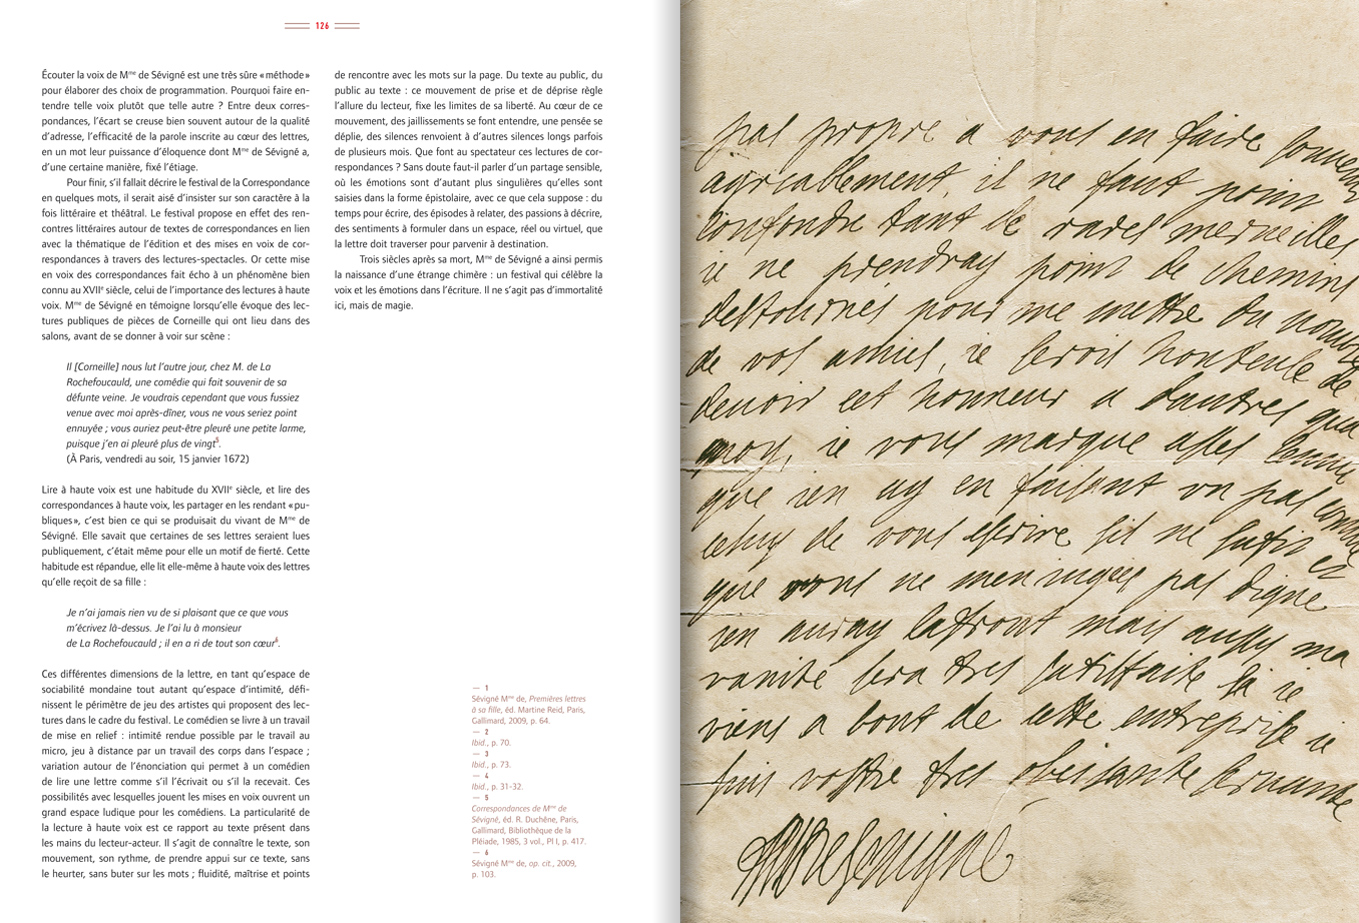 126
Écouter la voix de Mme de Sévigné est une très sûre « méthode »
pour élaborer des choix de programmation. Pourquoi faire en-
tendre telle voix plutôt que telle autre ? Entre deux corres-
pondances, l'écart se creuse bien souvent autour de la qualité
d'adresse, l'efficacité de la parole inscrite au cœur des lettres,
en un mot leur puissance d'éloquence dont Mme de Sévigné a,
d'une certaine manière, fixé l'étiage.
Pour finir, s'il fallait décrire le festival de la Correspondance
en quelques mots, il serait aisé d'insister sur son caractère à la
fois littéraire et théâtral. Le festival propose en effet des ren-
contres littéraires autour de textes de correspondances en lien
avec la thématique de l'édition et des mises en voix de cor-
respondances à travers des lectures-spectacles. Or cette mise
en voix des correspondances fait écho à un phénomène bien
connu au XVIIe siècle, celui de l'importance des lectures à haute
voix. Mme de Sévigné en témoigne lorsqu'elle évoque des lec-
tures publiques de pièces de Corneille qui ont lieu dans des
salons, avant de se donner à voir sur scène :
Il [Corneille] nous lut l'autre jour, chez M. de La
Rochefoucauld, une comédie qui fait souvenir de sa
défunte veine. Je voudrais cependant que vous fussiez
venue avec moi après-dîner, vous ne vous seriez point
ennuyée ; vous auriez peut-être pleuré une petite larme,
puisque j'en ai pleuré plus de vingt5.
(À Paris, vendredi au soir, 15 janvier 1672)
Lire à haute voix est une habitude du XVIIe siècle, et lire des
correspondances à haute voix, les partager en les rendant « pu-
bliques », c'est bien ce qui se produisait du vivant de Mme de
Sévigné. Elle savait que certaines de ses lettres seraient lues
publiquement, c'était même pour elle un motif de fierté. Cette
habitude est répandue, elle lit elle-même à haute voix des lettres
qu'elle reçoit de sa fille :
Je n'ai jamais rien vu de si plaisant que ce que vous
m'écrivez là-dessus. Je l'ai lu à monsieur
de La Rochefoucauld ; il en a ri de tout son cœur6.
Ces différentes dimensions de la lettre, en tant qu'espace de
sociabilité mondaine tout autant qu'espace d'intimité, défi-
nissent le périmètre de jeu des artistes qui proposent des lec-
tures dans le cadre du festival. Le comédien se livre à un travail
de mise en relief : intimité rendue possible par le travail au
micro, jeu à distance par un travail des corps dans l'espace ;
variation autour de l'énonciation qui permet à un comédien
de lire une lettre comme s'il l'écrivait ou s'il la recevait. Ces
possibilités avec lesquelles jouent les mises en voix ouvrent un
grand espace ludique pour les comédiens. La particularité de
la lecture à haute voix est ce rapport au texte présent dans
les mains du lecteur-acteur. Il s'agit de connaître le texte, son
mouvement, son rythme, de prendre appui sur ce texte, sans
le heurter, sans buter sur les mots ; fluidité, maîtrise et points
de rencontre avec les mots sur la page. Du texte au public, du
public au texte : ce mouvement de prise et de déprise règle
l'allure du lecteur, fixe les limites de sa liberté. Au cœur de ce
mouvement, des jaillissements se font entendre, une pensée se
déplie, des silences renvoient à d'autres silences longs parfois
de plusieurs mois. Que font au spectateur ces lectures de cor-
respondances ? Sans doute faut-il parler d'un partage sensible,
où les émotions sont d'autant plus singulières qu'elles sont
saisies dans la forme épistolaire, avec ce que cela suppose : du
temps pour écrire, des épisodes à relater, des passions à décrire,
des sentiments à formuler dans un espace, réel ou virtuel, que
la lettre doit traverser pour parvenir à destination.
Trois siècles après sa mort, Mme de Sévigné a ainsi permis
la naissance d'une étrange chimère : un festival qui célèbre la
voix et les émotions dans l'écriture. Il ne s'agit pas d'immortalité
ici, mais de magie.
— 1
Sévigné Mme de, Premières lettres
à sa fille, éd. Martine Reid, Paris,
Gallimard, 2009, p. 64.
— 2
Ibid., p. 70.
— 3
Ibid., p. 73.
— 4
Ibid., p. 31-32.
— 5
Correspondances de Mme de
Sévigné, éd. R. Duchêne, Paris,
Gallimard, Bibliothèque de la
Pléiade, 1985, 3 vol., Pl I, p. 417.
— 6
Sévigné Mme de, op. cit., 2009,
p. 103.
pas propre a vous en faire
agreablement, il ne faut point
confondre tant de rares merueilles
ie ne prendray point de chemins
destournés pour me mettre du nombre
de vos amies, ie serois honteuse de
deuoir cet honneur a dautres qua
moy, ie vous marque asses
que ien ay en faisant vn pas comme
celuy de vous escrire sil ne sufit et
que vous ne men iugies pas digne
ien auray lafront mais aussy ma
vanité sera tres satisfaite si ie
viens a bout de cette entreprise ie
suis vostre tres obeissante seruante